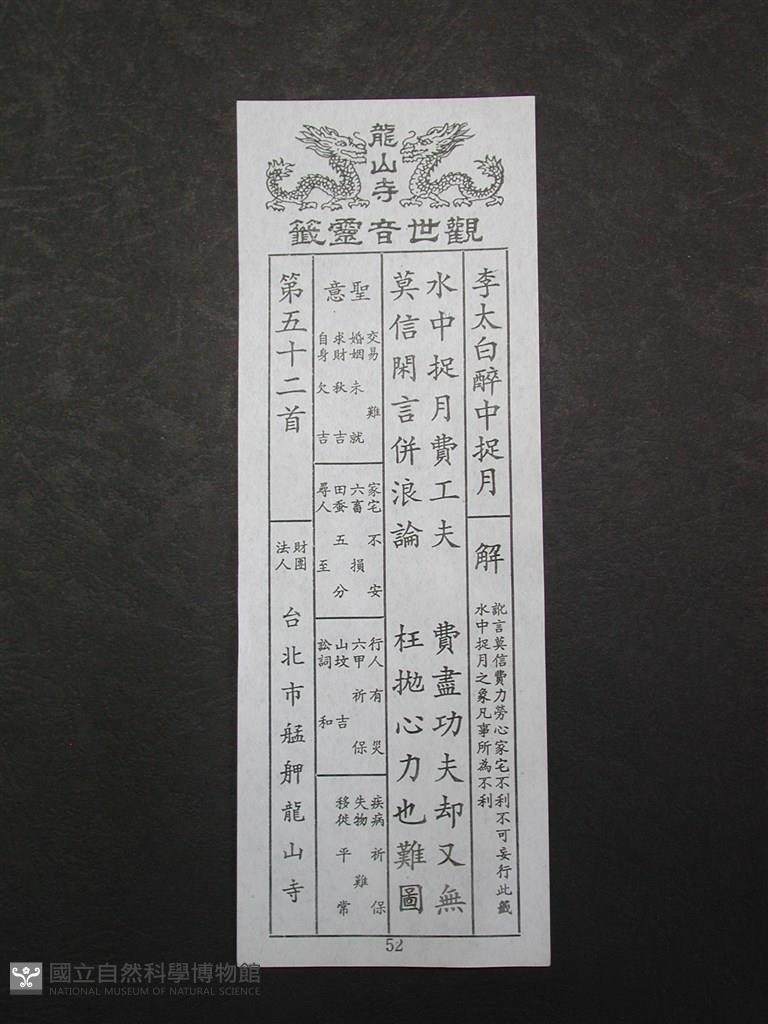 龍山寺
觀世音靈籤
李太白醉中捉月
解
訛言莫信費力勞心家宅不利不可妄行此籤
水中捉月之象凡事所為不利
水中捉月費工夫 費盡功夫却又無
莫信閑言併浪論 枉拋心力也難圖
聖意
交易 難
婚姻 未就
求財 秋吉
自身 欠吉
家宅 不安
六畜 損
田蚕 五分
尋人 至
行人 有災
六甲 祈保
山坟 吉
訟詞 和
疾病 祈保
失物 難
移徙 平常
第五十二首
財團法人
台北市艋舺龍山寺
52
國立自然科學博物館
NATIONAL MUSEUM OF NATURAL SCIENCE